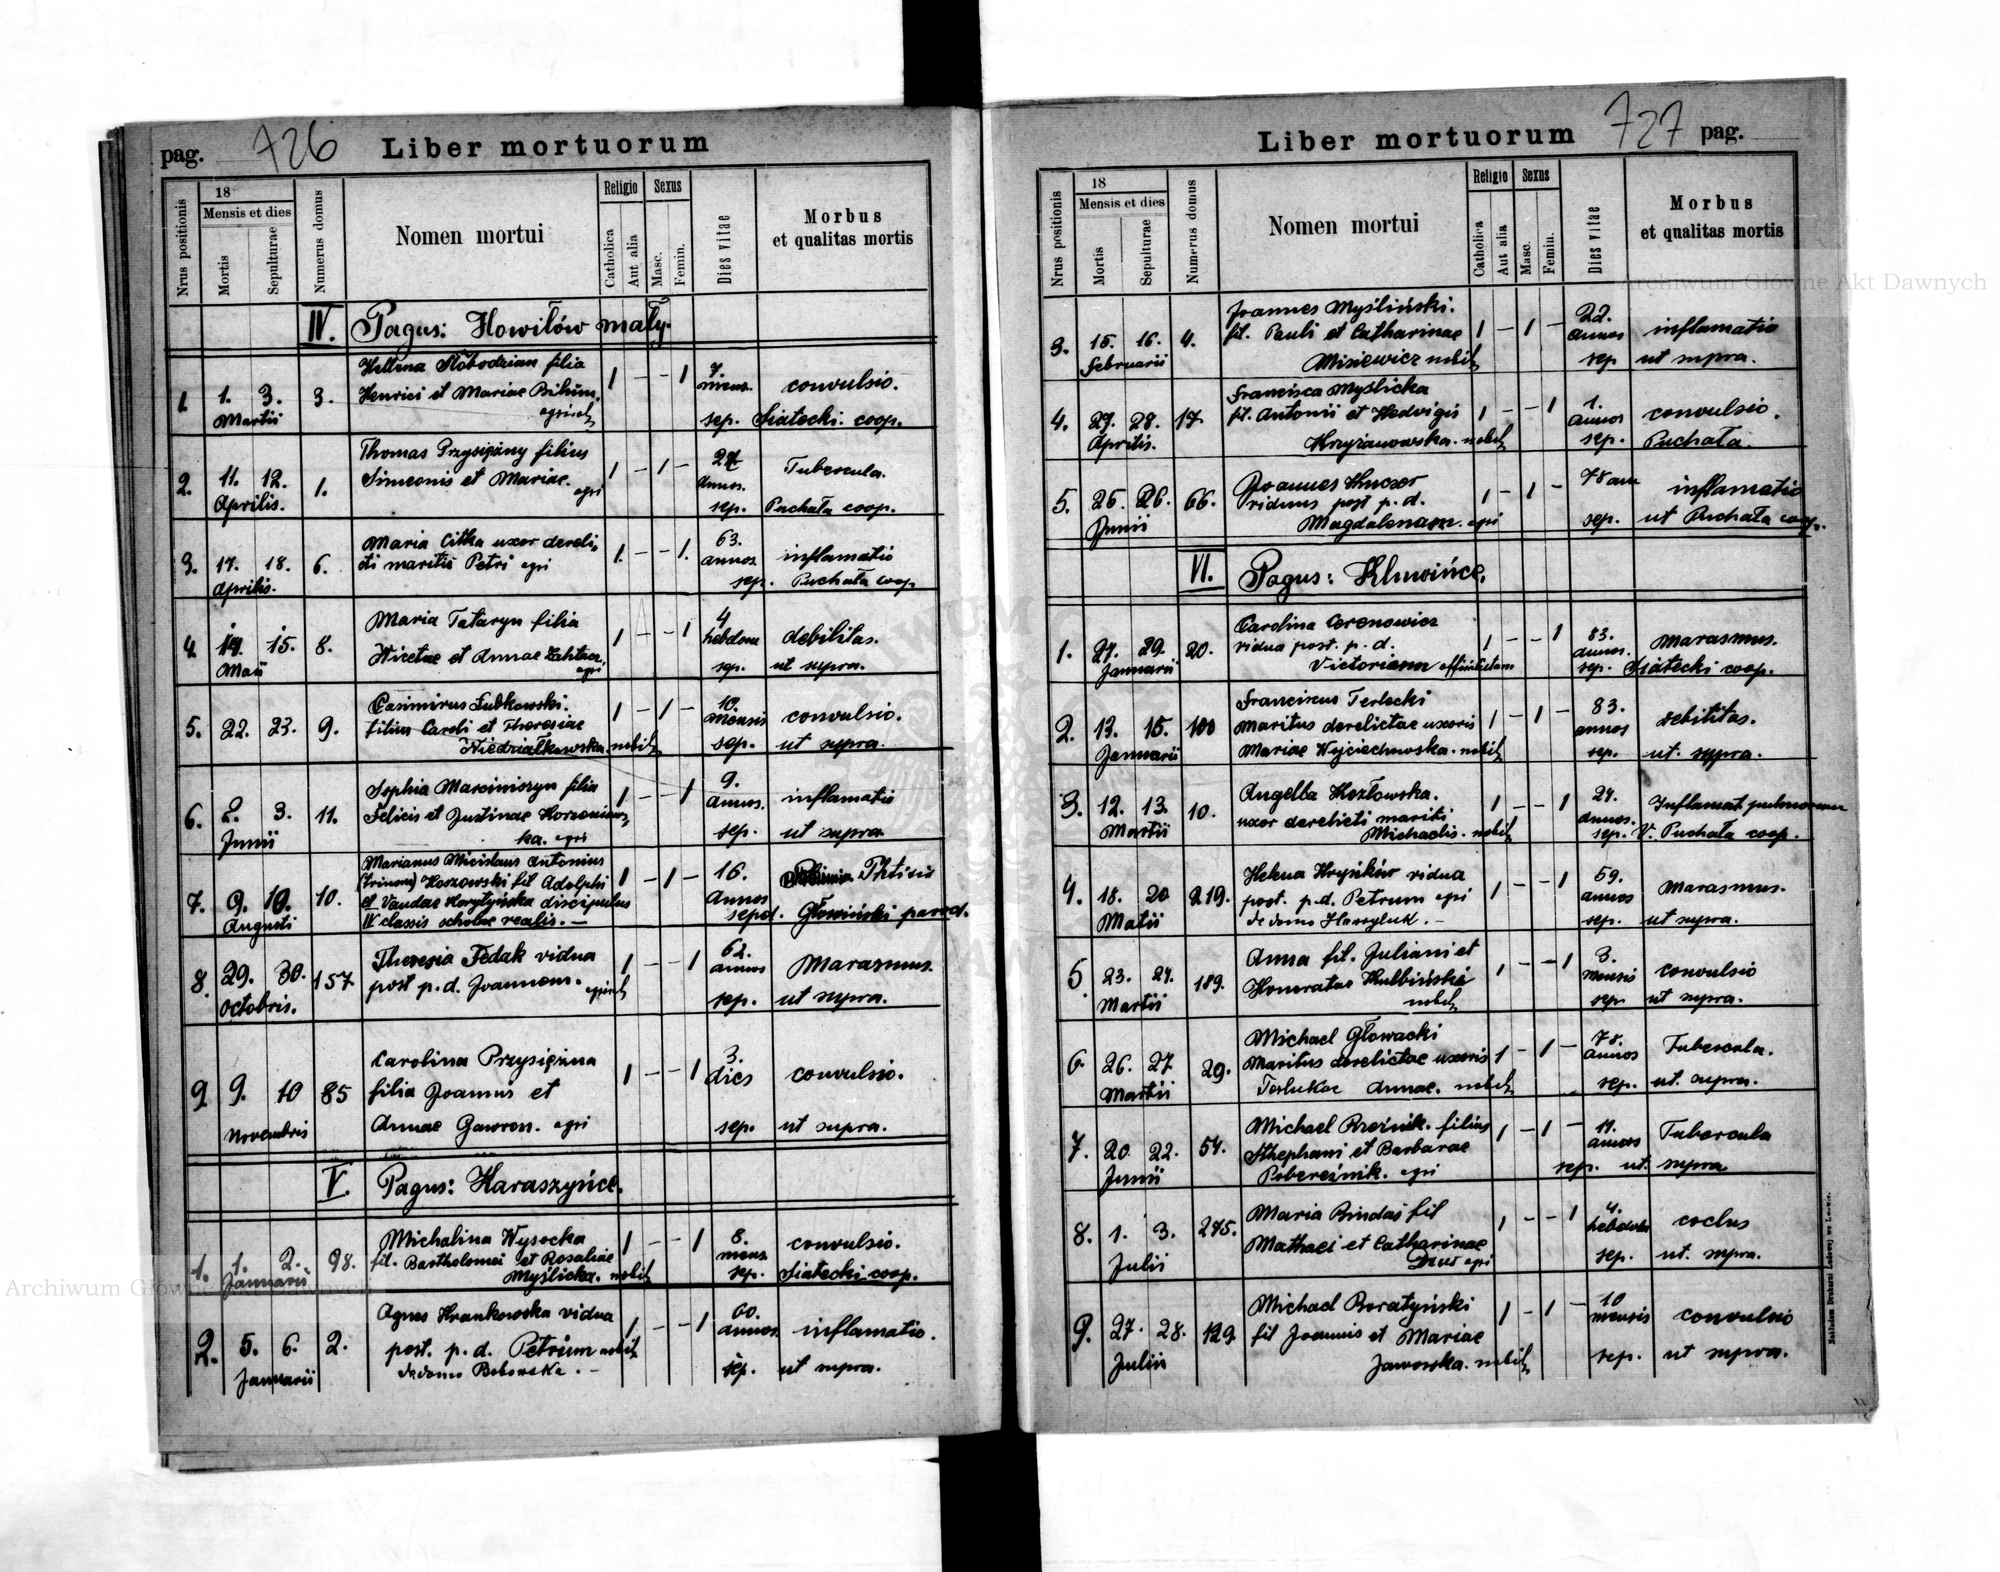 pag. 726 Liber mortuorum
Nrus positionis
18
Mensis et dies
Mortis
Sepulturae
Numerus domus
Nomen mortui
Religio
Catholica
Aut alia
Sexus
Masc.
Femin.
Dies vitae
Morbus
et qualitas mortis
IV. Pagus: Howiłów mały.
Hellena Słobodzian filia 7.
1. 1. 3. 3. Henrici et Mariae 1 - - 1 mens. convulsio.
Martii sep. Siatecki coop.
Thomas Przysiężny filius
2. 11. 12. 1. Simeonis et Mariae. agri 1 - 1 - annos. Tubercula.
Aprilis. sep. Puchała coop.
Maria Citka uxor dereli- 63.
3. 17. 18. 6. cti mariti Petri agri 1. - - 1. annos inflamatio
Aprilis. sep. Puchała coop
Maria Tataryn filia 4
4. 14. 15. 8. Nicetae et Annae 1 - - 1 hebdom debilitas.
Maii agri sep. ut supra.
Casimirus Lubkowski. 10.
5. 22. 23. 9. filius Caroli et Theresiae 1 - 1 - mensis convulsio.
Niedziałkowska. nobil sep. ut supra.
Sophia Marciniszyn filia 9.
6. 2. 3. 11. Felicis et Justinae 1 - - 1 annos. inflamatio
Junii ka. agri sep. ut supra
Marianus Micislaus Antonius
(trinom) Koszowski fil Adolphi 16. Phtisis
7. 9. 10. 10. et Vandae Korytyńska discipulus 1 - 1 - annos
Augusti IV classis scholae realis. — sepel. Głowiński paroch.
Theresia Fedak vidua 62.
8. 29. 30. 157 post p. d. Joannem. 1 - - 1 annos Marasmus.
Octobris. sep. ut supra.
Carolina Przysiężna 3.
9. 9. 10 85 filia Joannis et 1 - - 1 dies convulsio.
Novembris Annae Gawron. agri sep. ut supra.
V. Pagus: Haraszyńce.
Michalina Wysocka 8.
1. 1. 2. 98. fil. Bartholomei et Rosaliae 1 - - 1 mens convulsio.
Januarii Myślicka. nobil sep. Siatecki coop.
Agnes Hrankowska vidua 60.
2. 5. 6. 2. post. p. d. Petrum nobil 1 - - 1 annos. inflamatio.
Januarii de domo sep. ut supra.
Liber mortuorum 727 pag.
Nrus positionis
18
Mensis et dies
Mortis
Sepulturae
Numerus domus
Nomen mortui
Religio
Catholica
Aut alia
Sexus
Masc.
Femin.
Dies vitae
Morbus
et qualitas mortis
Joannes Myśliński. 22.
3. 15. 16. 4. fil. Pauli et Catharinae 1 - 1 - annos inflamatio
Februarii Misiewicz nobil sep ut supra.
Francisca Myślicka 1.
4. 27. 28. 17. fil. Antonii et Hedvigis 1 - - 1 annos convulsio.
Aprilis. Krzyżanowska. nobil sep. Puchała.
Joannes 78 ann
5. 25. 26. 66. viduus post p. d. 1 - 1 - inflamatio
Junii Magdalenam. agri sep. ut Puchała coop.
VI. Pagus: Kluwińce.
Carolina Cerenowicz 83.
1. 27. 29. 20. vidua post. p. d. 1 - - 1 annos. Marasmus.
Januarii Victoriam sep. Siatecki coop.
Franciscus Terlecki 83.
2. 13. 15. 100 maritus derelictae uxoris 1 - 1 - annos debilitas.
Januarii Mariae Wojciechowska. nobil sep. ut. supra.
Angella Kozłowska.
3. 12. 13. 10. uxor derelicti mariti 1 - - 1 annos. Inflamat. pulmonum
Martii Michaelis. nobil sep. V. Puchała coop.
Helena Hryńków vidua 59.
4. 18. 20 219. post. p. d. Petrum agri 1 - - 1 annos Marasmus.
Matii de domo sep. ut supra.
Anna fil. Juliani et 3.
5. 23. 24. 189. Honoratae Kulbińska 1 - - 1 mensis convulsio
Martii nobil sep. ut supra.
Michael Głowacki 78.
6. 26. 27 29. maritus derelictae uxoris 1 - 1 - annos Tubercula.
Martii Annae. nobil sep. ut. supra.
Michael filius
7. 20. 22. 54. Stephani et Barbarae 1 - 1 - annos Tubercula
Junii Pobereźnik. agri sep. ut. supra
Maria Bindas fil 4.
8. 1. 3. 275. Mathaei et Catharinae 1 - - 1 hebdom coclus
Julii agri sep. ut. supra.
Michael Boratyński 10
9. 27. 28. 129. fil Joannis et Mariae 1 - 1 - mensis convulsio
Julii Jaworska. nobil sep. ut supra.
Nakładem Drukarni Ludowej we Lwowie.
Archiwum Główne Akt Dawnych
Archiwum Główne Akt Dawnych